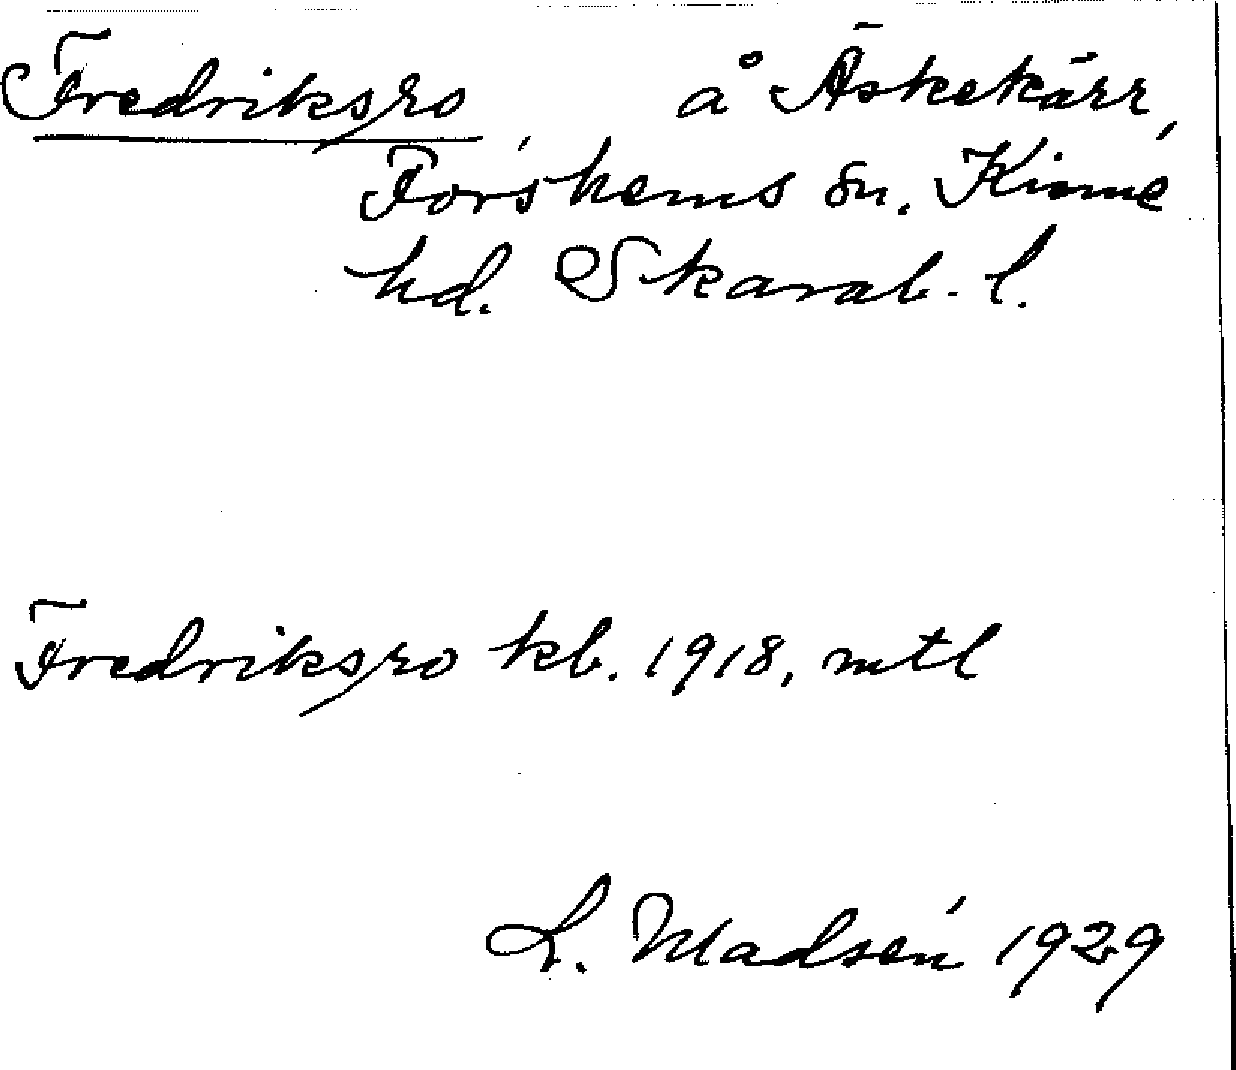 Fredriksro å Äskekärr,
Forshems sn. Kinne
hd. Skarab. l.
Fredriksro kb. 1918, mtl
L. Madsén 1929